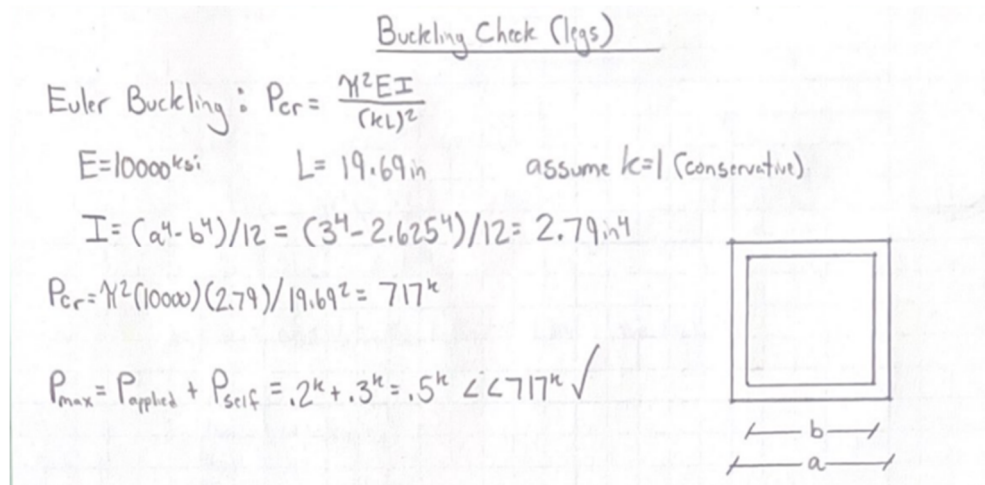 Buckling Check (legs)
Euler Buckling: Pcr = π²EI/(kL)²
E=10000ksi L= 19.69in assume k=1 (conservative)
I= (a⁴-b⁴)/12 = (3⁴-2.625⁴)/12= 2.79in⁴
Pcr=π²(10000)(2.79)/19.69²= 717ᵏ
Pmax= Papplied + Pself = .2ᵏ+.3ᵏ=.5ᵏ <<717ᵏ ✓
b
a